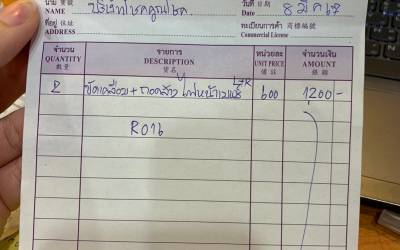 นาม 寶號
NAME บริษัทโชคคูณโชค
วันที่ 日期
Date 8 มีค 67
ที่อยู่ 住址
ADDRESS
ทะเบียนการค้า 商標編號
Commercial License
จำนวน QUANTITY 數量 รายการ DESCRIPTION 貨名 หน่วยละ UNIT PRICE 價錢 จำนวนเงิน AMOUNT 銀額
2 ขัดเคลือบ + ถอดล้าง ไฟหน้า 600 1200 -
R016